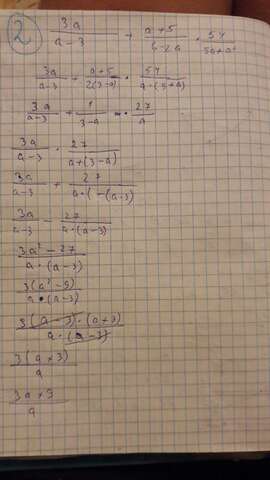 2 3a/(a-3) + (a+5)/(6-2a) · 54/(5a+a²)
3a/(a-3) + (a+5)/(2(3-a)) · 54/(a·(5+a))
3a/(a-3) + 1/(3-a) · 27/a
3a/(a-3) · 27/(a+(3-a))
3a/(a-3) + 27/(a·(-(a-3))
3a/(a-3) - 27/(a·(a-3))
(3a²-27)/(a·(a-3))
3(a²-9)/(a·(a-3))
3(a-3)·(a+3)/(a·(a-3))
3(a+3)/a
(3a+3)/a